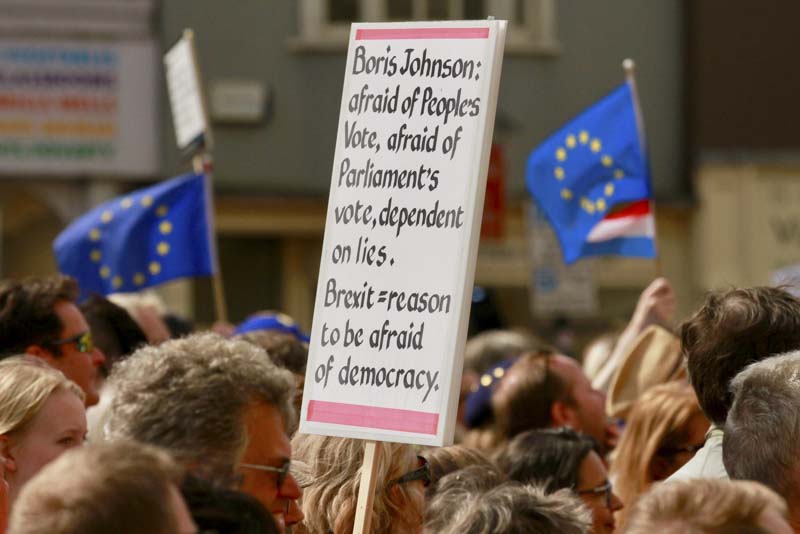 Boris Johnson:
afraid of People's
Vote, afraid of
Parliament's
vote, dependent
on lies.
Brexit = reason
to be afraid
of democracy.